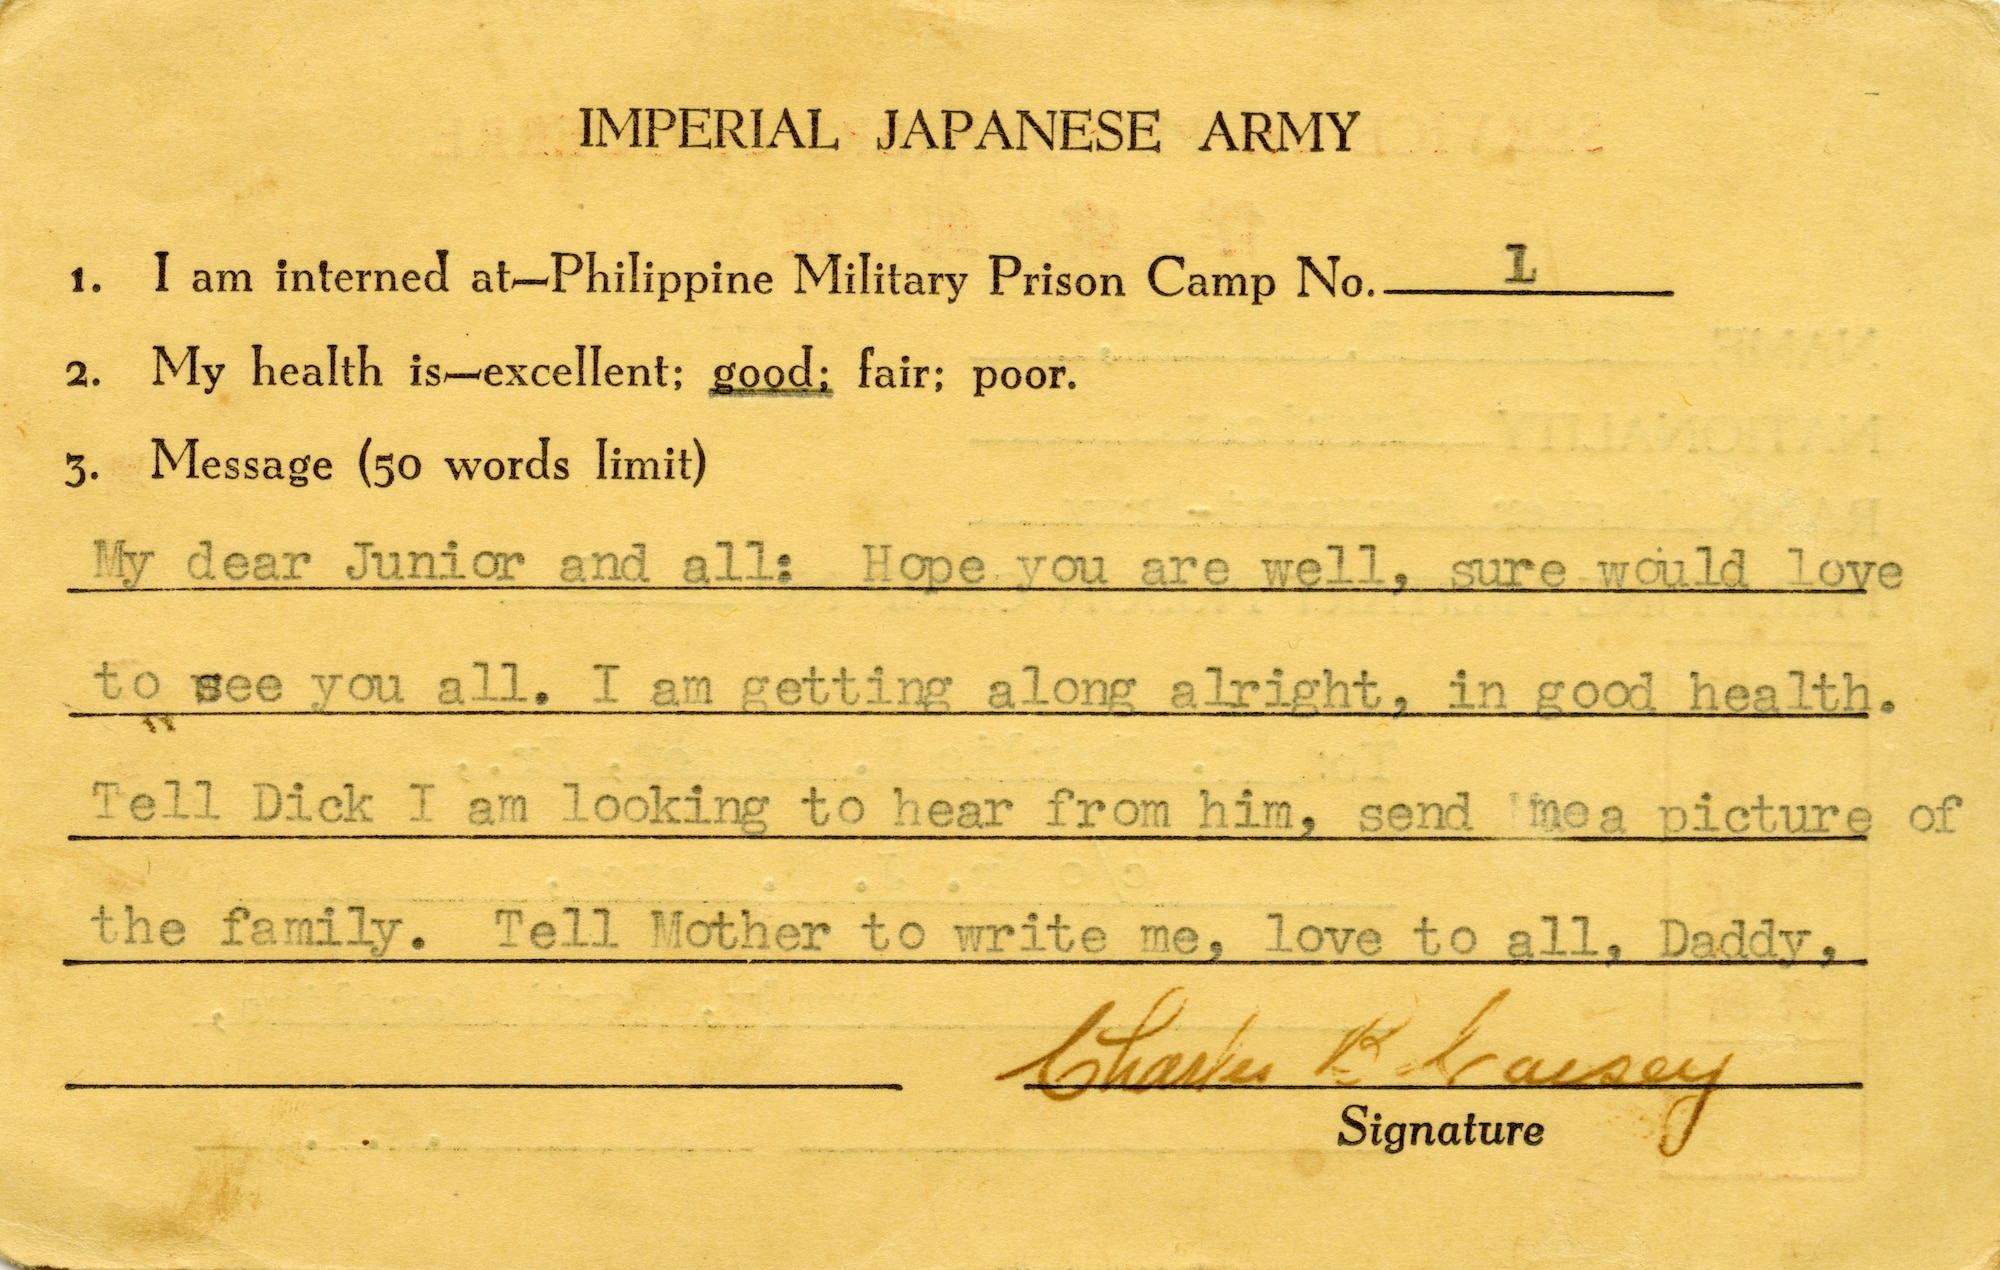 IMPERIAL JAPANESE ARMY
1. I am interned at—Philippine Military Prison Camp No. 1
2. My health is—excellent; good; fair; poor.
3. Message (50 words limit)
My dear Junior and all: Hope you are well, sure would love
to see you all. I am getting along alright, in good health.
Tell Dick I am looking to hear from him, send me a picture of
the family. Tell Mother to write me, love to all, Daddy,
Charles
Signature